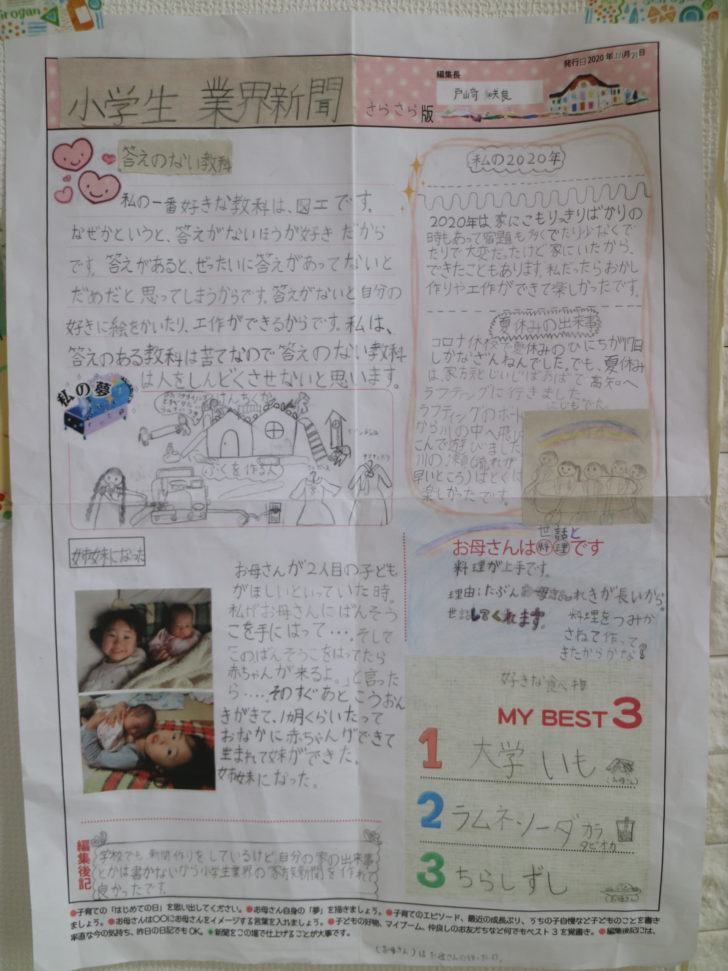 発行日 2020年11月21日
編集長
小学生 業界新聞
さらさら版
戸山奇 咲良
答えのない教科
私の一番好きな教科は、図工です。
なぜかというと、答えがないほうが好きだから
です。答えがあると、ぜったいに答えがあってないと
だめだと思ってしまうからです。答えがないと自分の
好きに絵をかいたり、工作ができるからです。私は、
答えのある教科は苦てなので答えのない教科
は人をしんどくさせないと思います。
私の夢
けんちくか
ふくを作る人
姉妹になった
お母さんが2人目の子ども
がほしいといっていた時。
私がお母さんにばんそう
こを手にはって…. そして
「このばんそうこをはってたら
赤ちゃんが来るよ。」と言った
ら…. そのすぐあと、こうおん
きがきて、1カ月くらいたって
おなかに赤ちゃんができて
生まれて妹ができた。
姉妹になった。
編集後記
学校でも新聞作りをしているけど自分の家の出来事
とかは書かないから小学生業界の家族新聞を作れて
良かったです。
私の2020年
2020年は家にこもりっきりばかりの
時もあって宿題も多くでたり少なくで
たりで大変だったけど家にいたから、
できたこともあります。私だったらおかし
作りや工作ができて楽しかったです。
夏休みの出来事
コロナ休校で夏休みのひにちが17日
しかなくざんねんでした。でも、夏休み
は、家族とじいじばあばと高知へ
ラフティングに行きました。
ラフティングのボート
から川の中へ飛び
こんで遊びました
川の瀬(流れが
早いところ)はとくに
楽しかったです。
世話と
お母さんは料理です
料理が上手です。
理由:たぶん れきが長いから。
世話してくれます。
料理をつみか
さねて作って
きたからかな!
好きな食べ物
MY BEST 3
1 大学いも
2 ラムネソーダ
3 ちらしずし
●子育ての「はじめての日」を思い出してください。●お母さん自身の「夢」を描きましょう。●子育てのエピソード、最近の成長ぶり、うちの子自慢など子どものことを書き
ましょう。●お母さんは〇〇にお母さんをイメージする言葉を入れましょう。●子どもの好物、マイブーム、仲良しのお友だちなど何でもベスト3を発表。●編集後記には、
率直な今の気持ち、昨日の日記でもOK。●新聞をこの場で仕上げることが大事です。